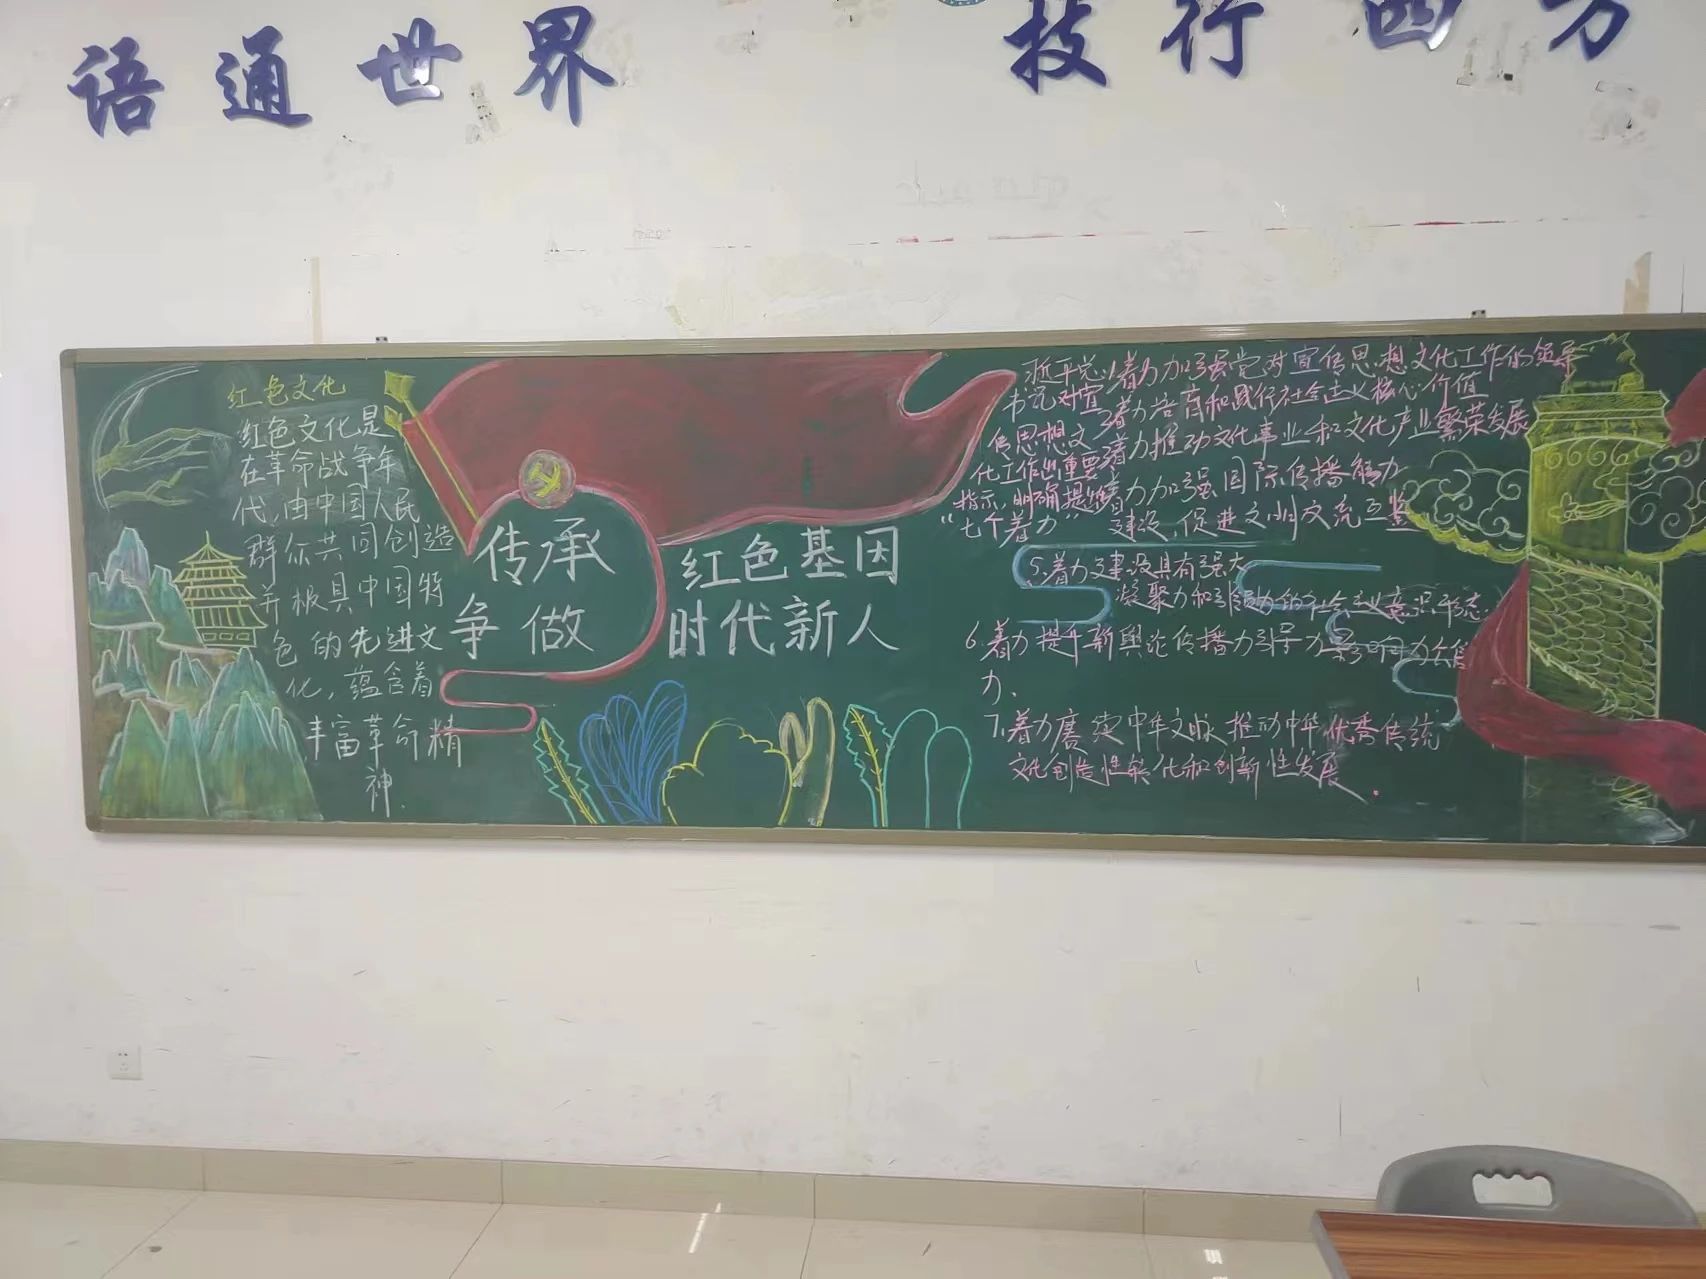 语通世界
技行四方
红色文化
红色文化是
在革命战争年
代,由中国人民
群众共同创造
并极具中国特
色的先进文
化,蕴含着
丰富革命精
神.
传承 红色基因
争做 时代新人
书记对宣
传思想文
化工作的重要
指示,明确提出
"七个着力"
着力加强党对宣传思想文化工作的领导
着力培育和践行社会主义核心价值
着力推动文化事业和文化产业繁荣发展
着力加强国际传播能力
建设,促进文明交流互鉴
5.着力建设具有强大
凝聚力和引领力的社会主义意识形态
6.着力提升新舆论传播力引导力影响力公信
力、
7.着力赓续中华文脉、推动中华优秀传统
文化创造性转化和创新性发展.